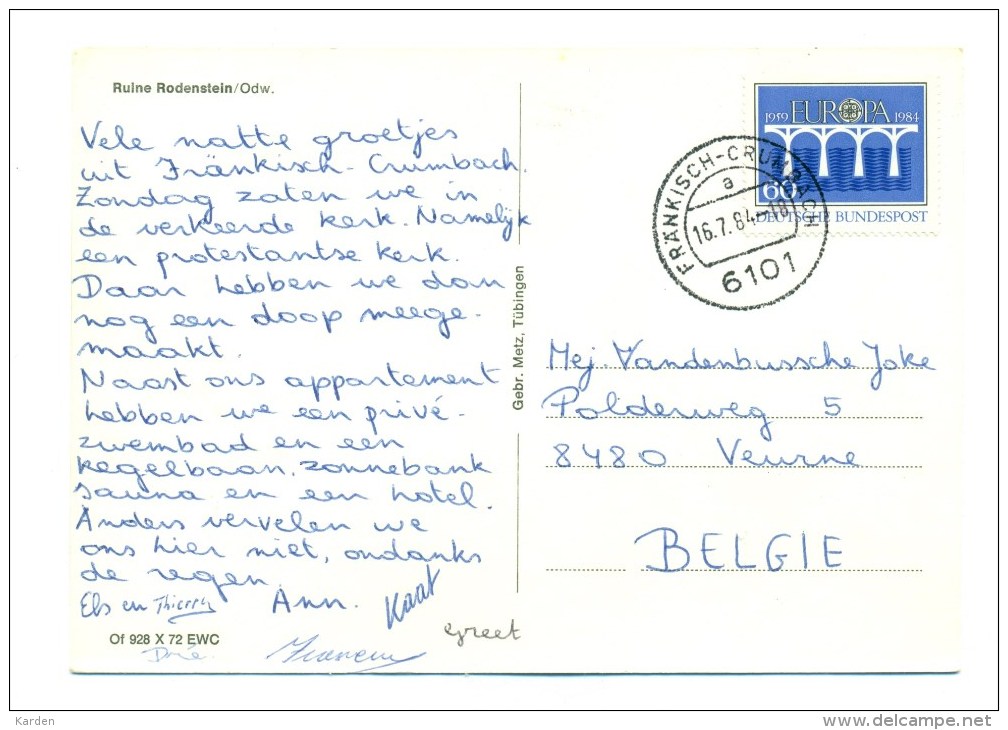 Ruine Rodenstein/Odw.
Vele natte groetjes
uit Fränkisch-Crumbach.
Zondag zaten we in
de verkeerde kerk. Namelijk
een protestantse kerk.
Daar hebben we dan
nog een doop meege-
maakt.
Naast ons appartement
hebben we een privé-
zwembad en een
kegelbaan, zonnebank
sauna en een hotel.
Anders vervelen we
ons hier niet, ondanks
de regen.
Els en Thierry Ann. Kaat
Greet
Of 928 X 72 EWC
Gebr. Metz, Tübingen
1959 EUROPA 1984
60
DEUTSCHE BUNDESPOST
FRÄNKISCH-CRUMBACH
a
16.7.84-18
6101
Mej. Vandenbussche Joke
Polderweg 5
8480 Veurne
BELGIE
Karden
www.delcampe.net